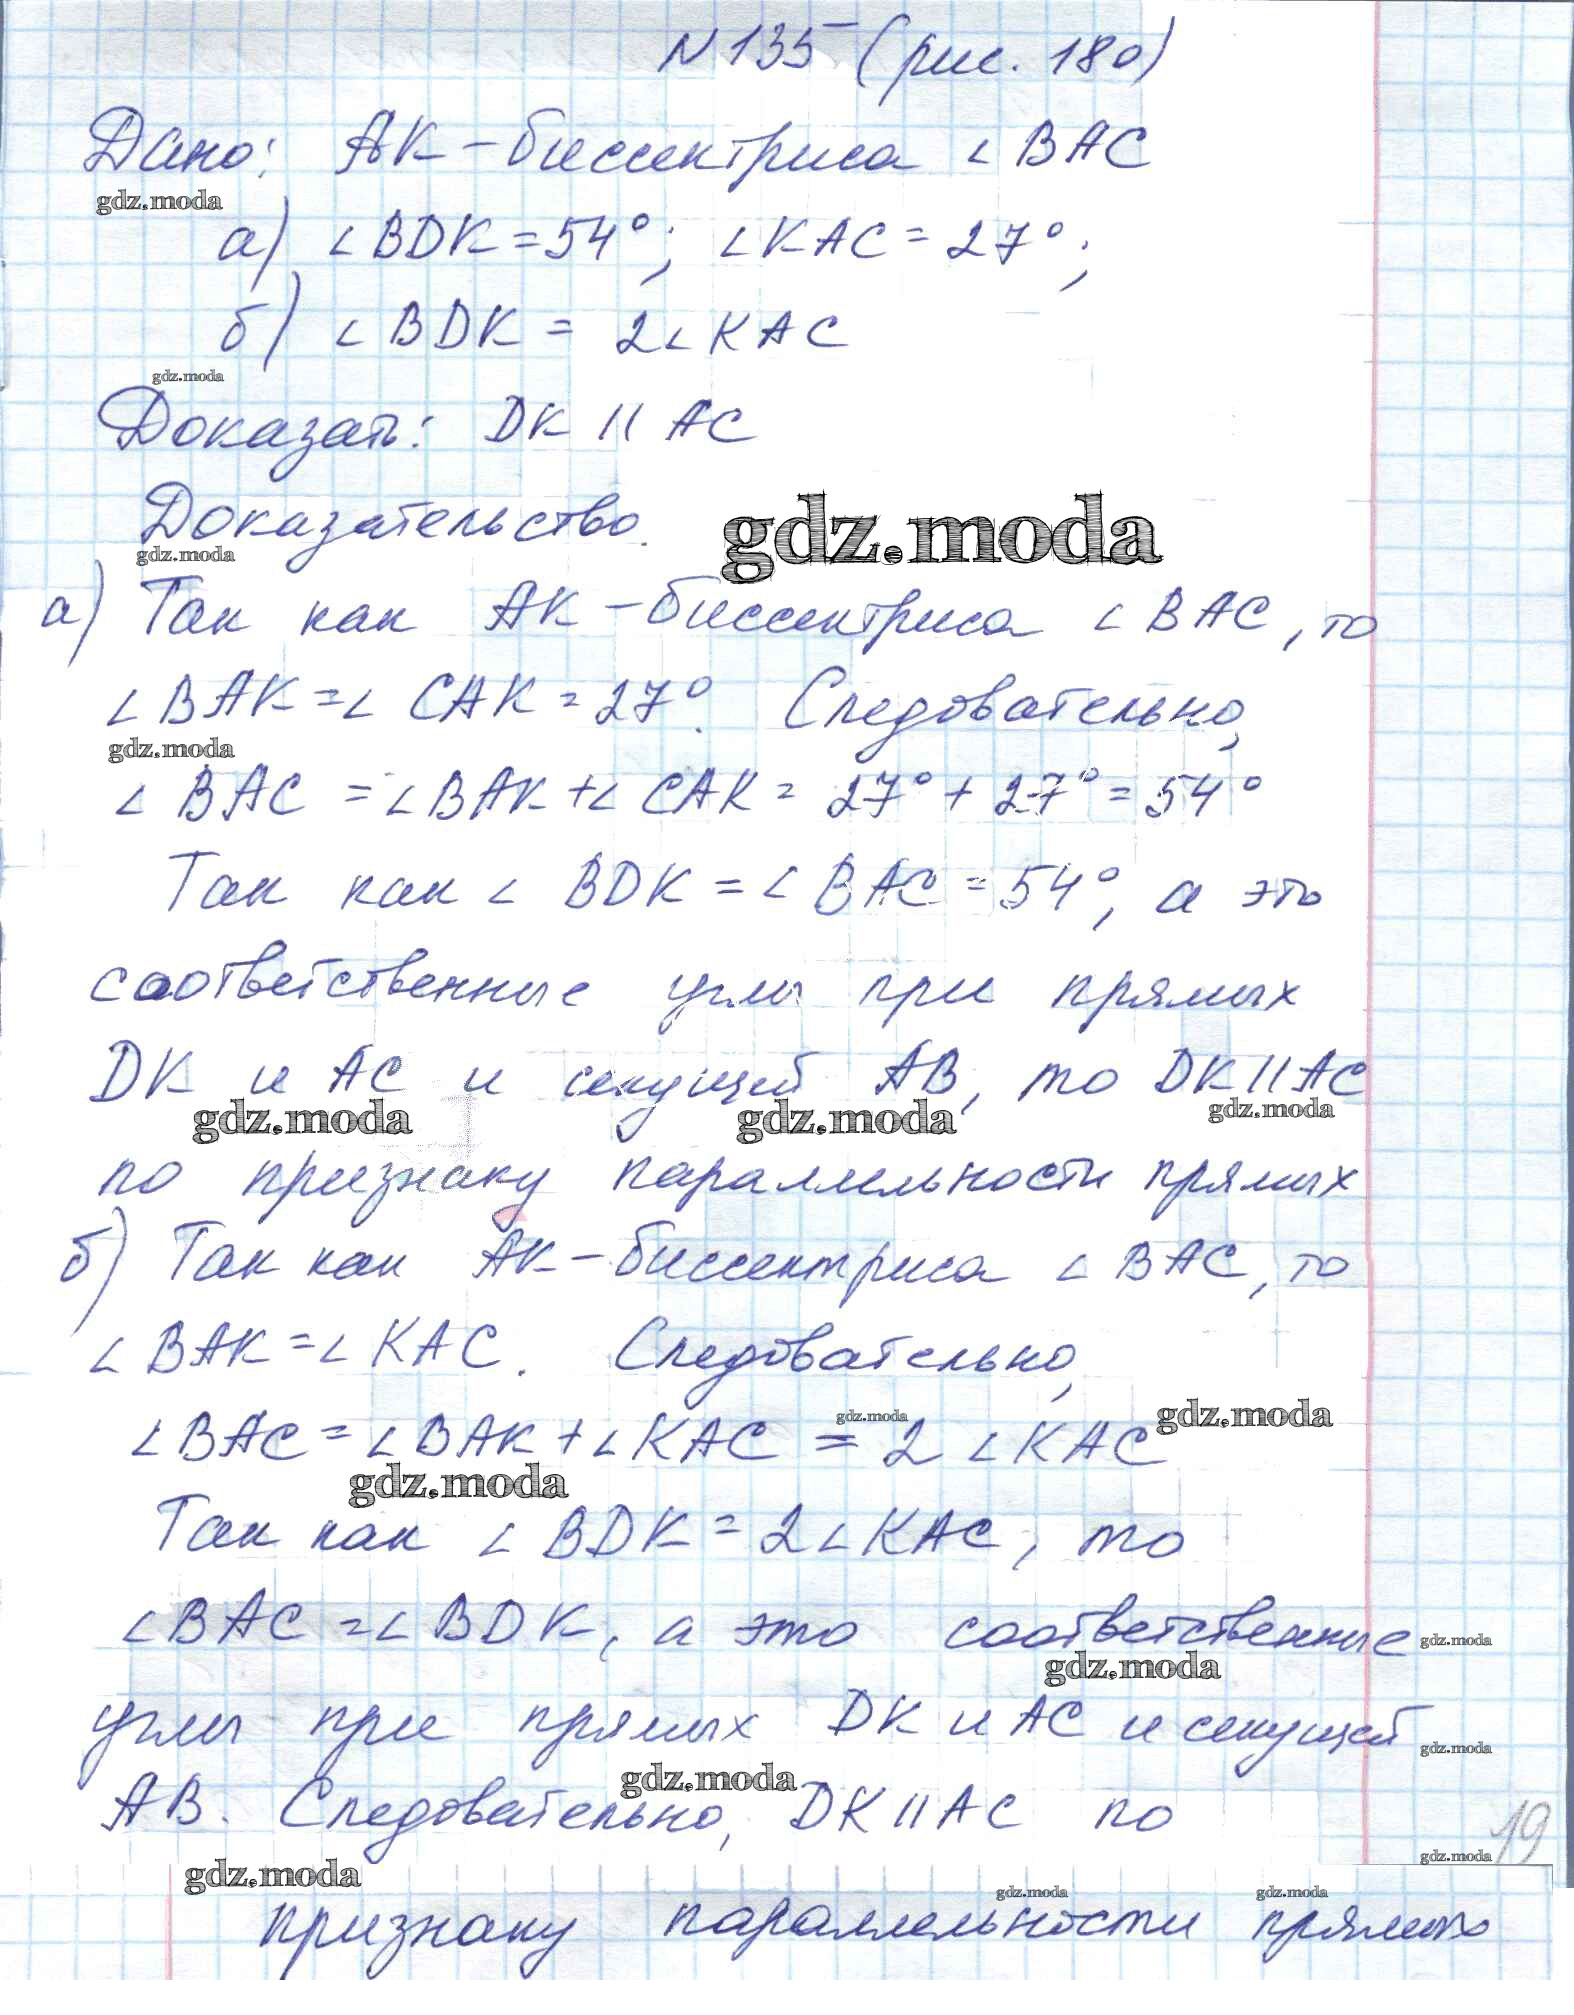 N 135 (рис. 180)
Дано: AK - биссектриса ∠ BAC
gdz.moda
а) ∠BDK = 54°; ∠KAC = 27°;
б) ∠BDK = 2∠KAC
gdz.moda
Доказать: DK || AC
Доказательство.
gdz.moda
gdz.moda
а) Так как AK - биссектриса ∠ BAC, то
∠ BAK = ∠ CAK = 27°. Следовательно,
gdz.moda
∠ BAC = ∠ BAK + ∠ CAK = 27° + 27° = 54°
Так как ∠ BDK = ∠ BAC = 54°, а это
соответственные углы при прямых
DK и AC и секущей AB, то DK || AC
gdz.moda gdz.moda gdz.moda
по признаку параллельности прямых
б) Так как AK - биссектриса ∠ BAC, то
∠ BAK = ∠ KAC. Следовательно,
gdz.moda gdz.moda
∠BAC = ∠BAK + ∠KAC = 2 ∠KAC
gdz.moda
Так как ∠ BDK = 2∠KAC, то
∠BAC = ∠BDK, а это соответственные
gdz.moda
gdz.moda
углы при прямых DK и AC и секущей
gdz.moda
gdz.moda
AB. Следовательно, DK || AC по
19
gdz.moda
gdz.moda
gdz.moda gdz.moda
признаку параллельности прямых